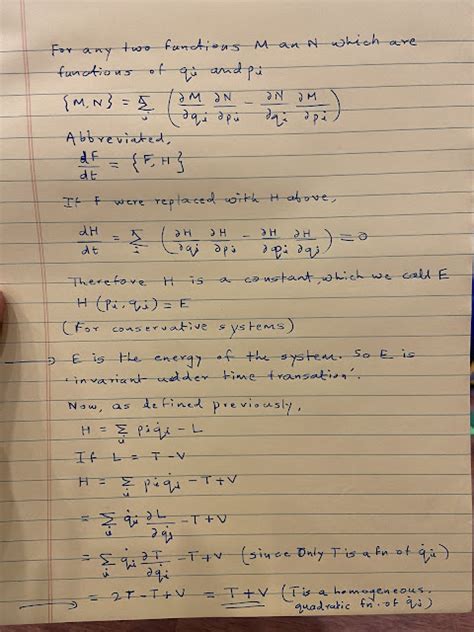 For any two functions M an N which are
functions of qi and pi
{M,N} = Σi (∂M/∂qi ∂N/∂pi − ∂N/∂qi ∂M/∂pi)
Abbreviated,
dF/dt = {F, H}
If F were replaced with H above,
dH/dt = Σi (∂H/∂qi ∂H/∂pi − ∂H/∂pi ∂H/∂qi) = 0
Therefore H is a constant, which we call E
H (pi, qi) = E
(For conservative systems)
→ E is the energy of the system. So E is
'invariant udder time transation'.
Now, as defined previously,
H = Σi pi q̇i − L
If L = T − V
H = Σi pi q̇i − T + V
= Σi q̇i ∂L/∂q̇i − T + V
= Σi q̇i ∂T/∂q̇i − T + V (since Only T is a fn of q̇i)
→ = 2T − T + V = T + V (T is a homogeneous.
quadratic fn. of q̇i)